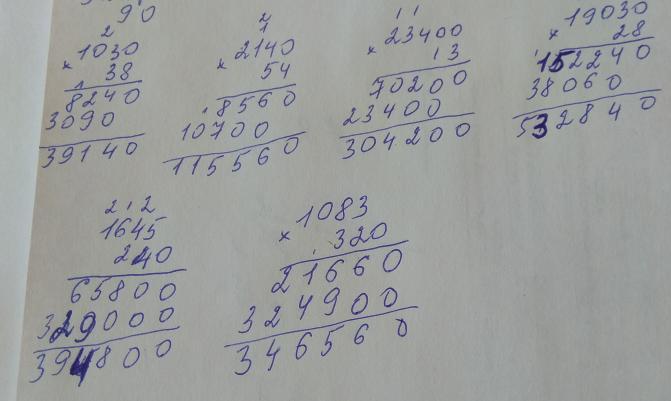 90
2
1030
× 38
8240
3090
39140
2
1
2140
× 54
8560
10700
115560
1 1
23400
× 13
70200
23400
304200
19030
× 28
152240
38060
532840
2 1 2
1645
240
65800
329000
394800
1083
× 320
21660
324900
346560